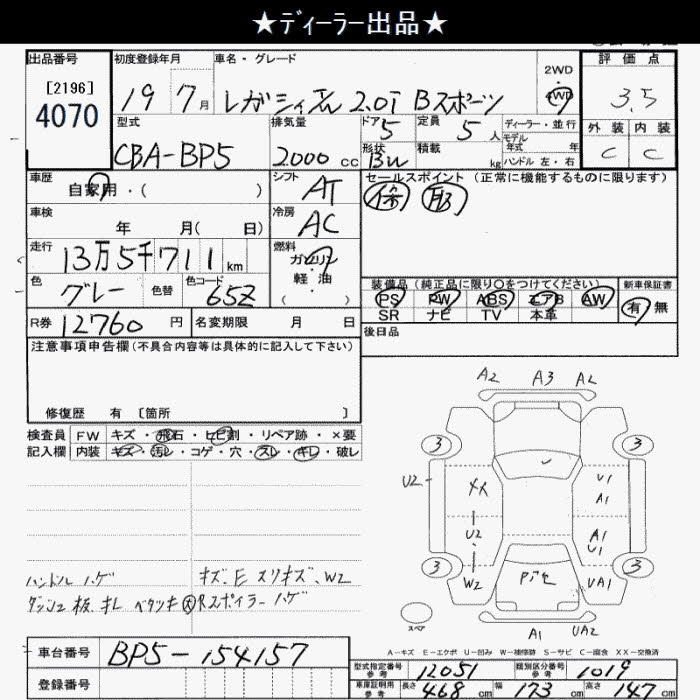 ★ディーラー出品★
出品番号 初度登録年月 車名・グレード 2WD 評価点
[2196] 4070 19 7月 レガシィ 2.0i Bスポーツ 4WD 3.5
型式 排気量 ドア 定員 ディーラー・並行 外装 内装
CBA-BP5 2000cc 5 5人 モデル年式 年 C C
形状 積載 kg ハンドル 左・右
車歴 シフト セールスポイント (正常に機能するものに限ります)
自家用・( ) AT
車検 冷房
年 月( 日) AC
走行 燃料
13万5千711km ガソリン・軽油
色 色替 色コード ( )
グレー 65Z
装備品(純正品に限り○をつけてください) 新車保証書
PS PW ABS エアB AW 有 無
SR ナビ TV 本革
R券 12760円 名変期限 月 日 後日品
注意事項申告欄(不具合内容等は具体的に記入して下さい)
修復歴 有 [箇所 ]
検査員 FW キズ・飛石・ヒビ割・リペア跡・×要
記入欄 内装 キズ・汚レ・コゲ・穴・スレ・キレ・破レ
A2 A3 A2
3 3
U2 XX U1
A1
U2 A1
U1
3 3
W2 UA1
A1 UA2
スペア
ハンドル ハゲ キズ、E スリキズ、W2
ダッシュ板、キレ ベタツキ大 Rスポイラー ハゲ
A-キズ E-エクボ U-凹み W-補修跡 S-サビ C-腐食 XX-交換済
車台番号 BP5-154157
登録番号
型式指定番号 参考 12051 類別区分番号 参考 1019
車庫証明用 参考 長さ 468cm 幅 173cm 高さ 147cm